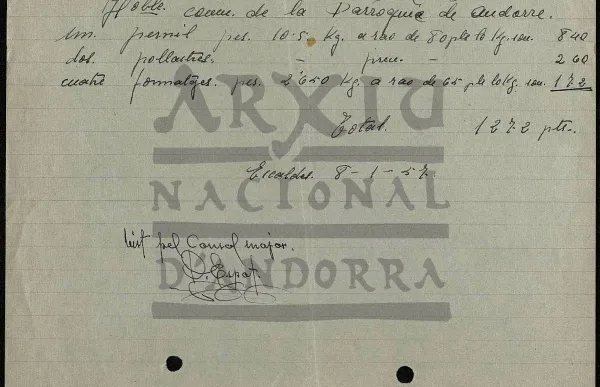 Hble. comu. de la Parroquia de Andorre.
un. pernil pes. 10.5. Kg. a rao de 80 pts lo Kg. son. 840
dos. pollastres. - preu. - 260
cuatre formatges. pes. 2'650 Kg. a rao de 65 pts lo Kg. son. 172
Total. 1272 pts.
Escaldes. 8-1-57
Vist pel Consol major.
ARXIU
NACIONAL
D'ANDORRA